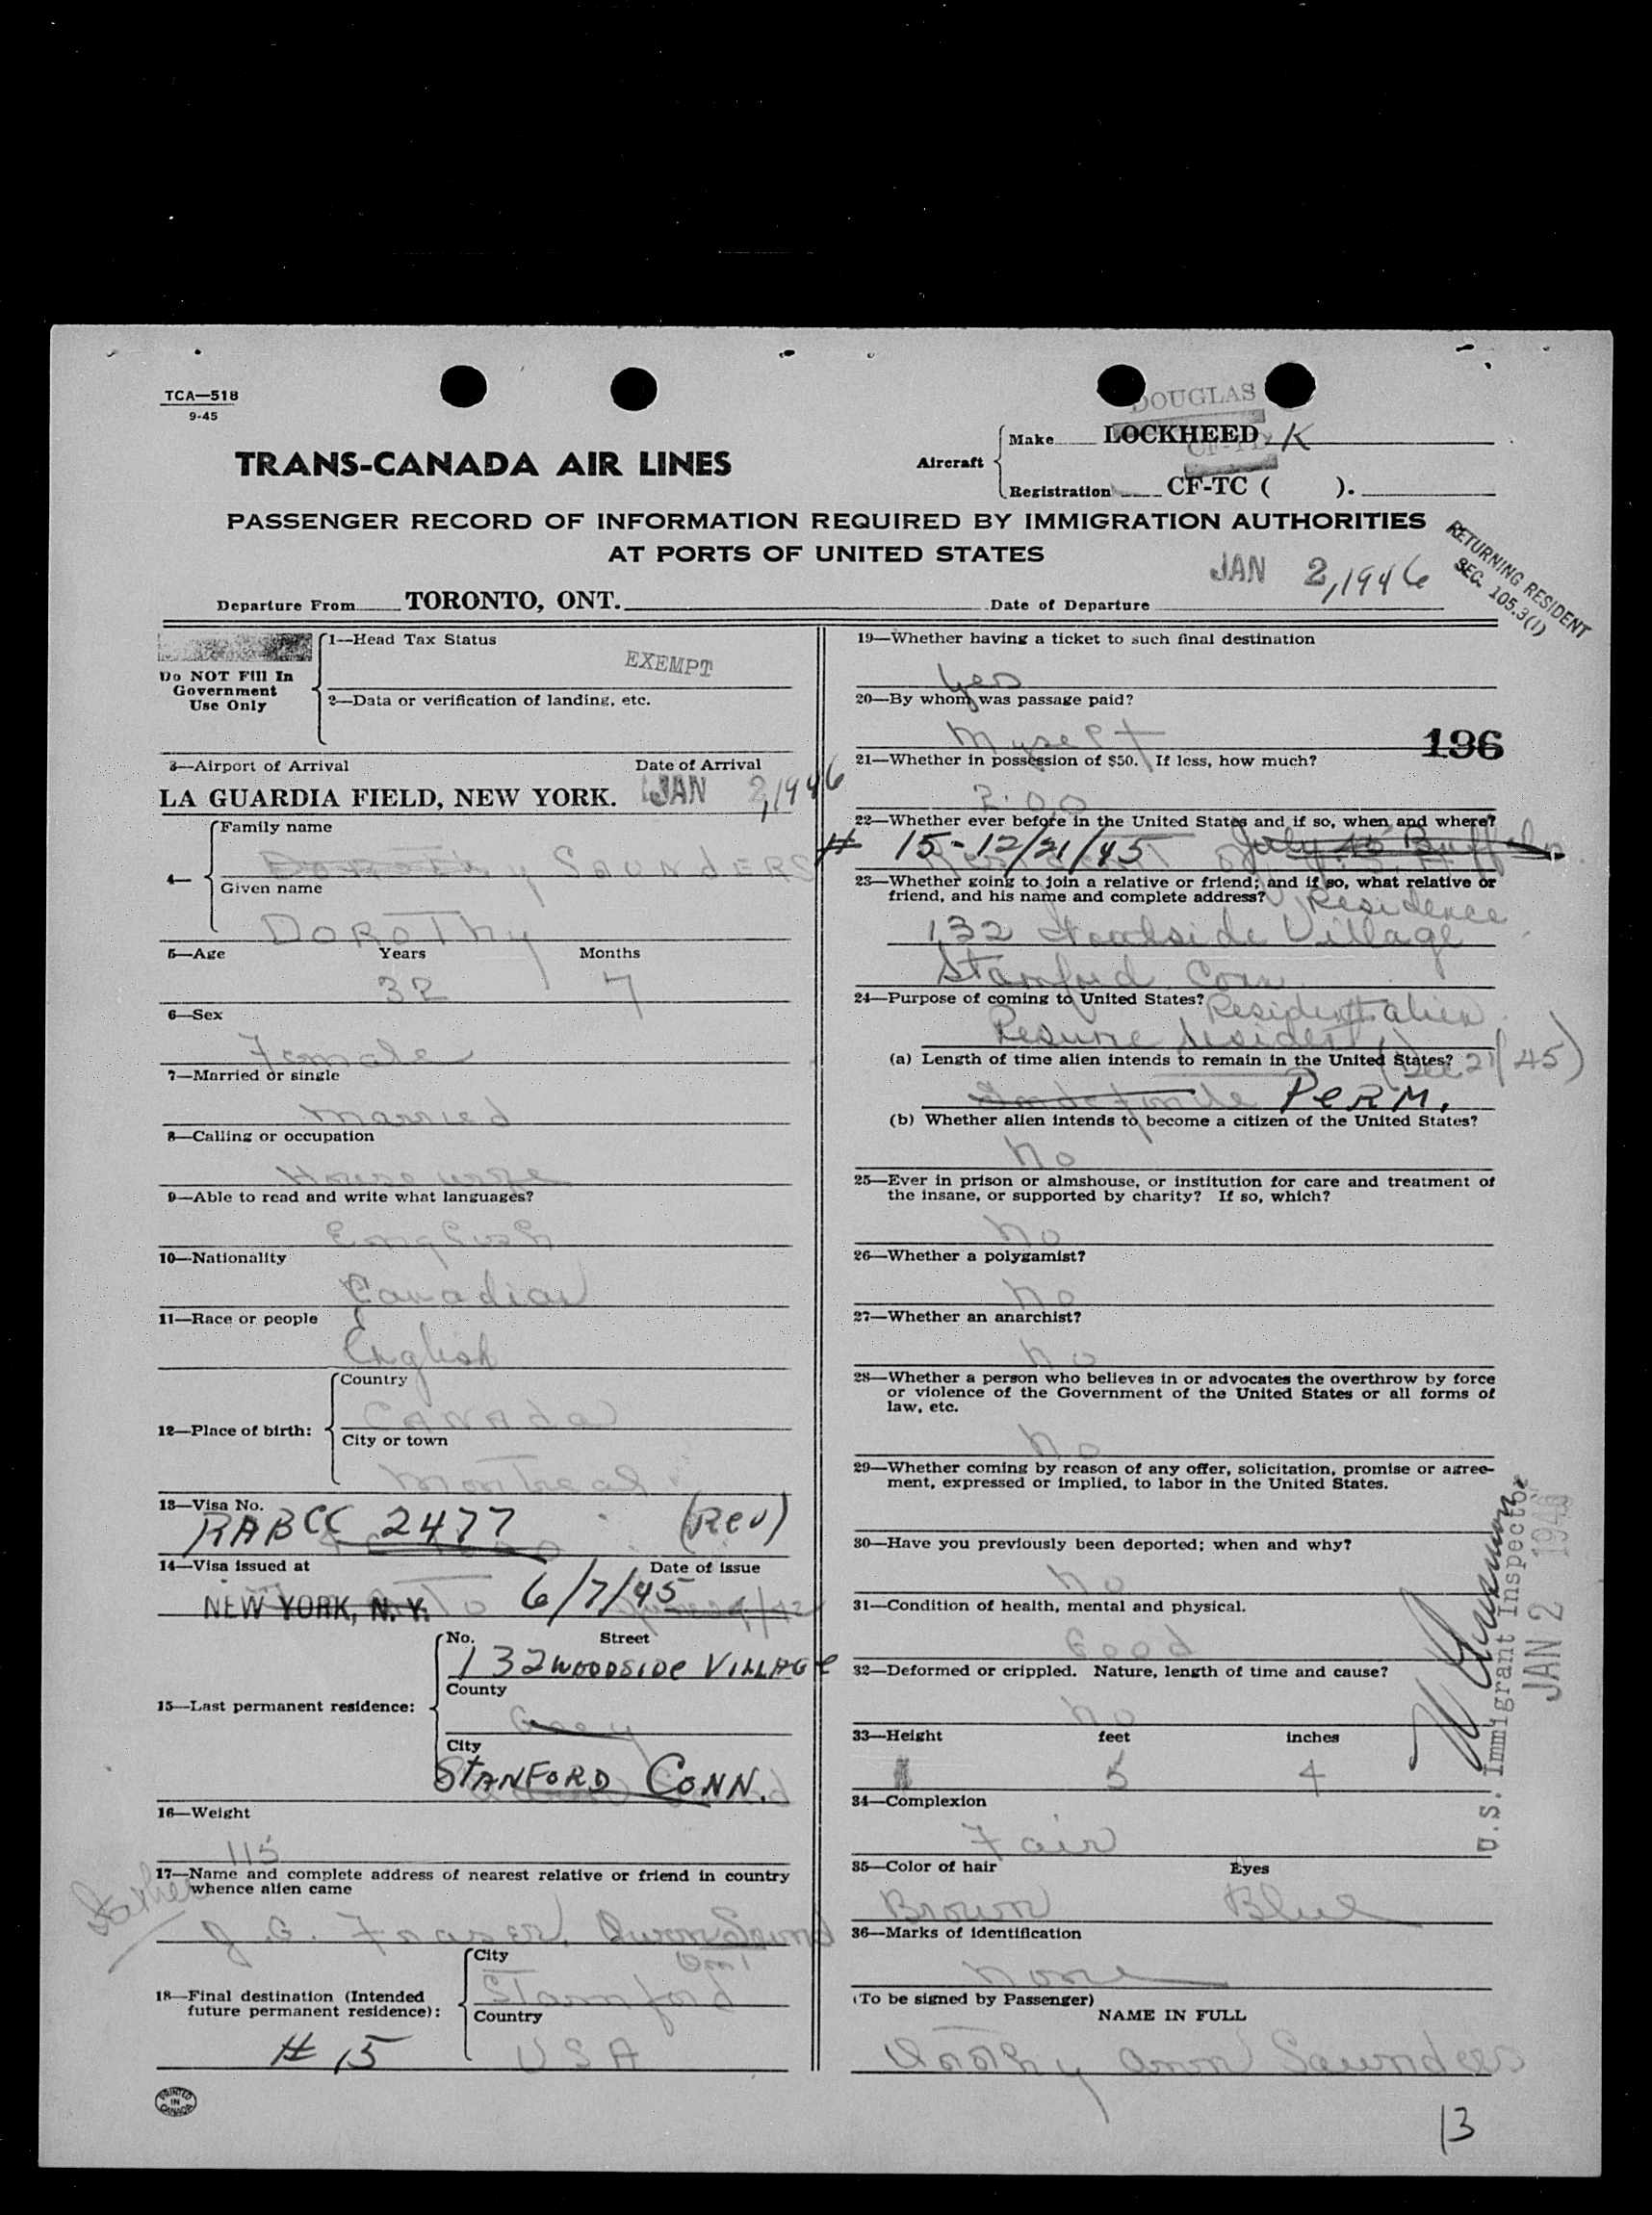 TCA—518
9-45
TRANS-CANADA AIR LINES
DOUGLAS
Aircraft
Make LOCKHEED K
Registration CF-TC ( ).
PASSENGER RECORD OF INFORMATION REQUIRED BY IMMIGRATION AUTHORITIES
AT PORTS OF UNITED STATES
RETURNING RESIDENT
SEC. 105.3(1)
Departure From TORONTO, ONT. Date of Departure JAN 2, 1946
Do NOT Fill In
Government
Use Only
1—Head Tax Status
EXEMPT
2—Data or verification of landing, etc.
3—Airport of Arrival Date of Arrival
LA GUARDIA FIELD, NEW YORK. JAN 2, 1946
4—
Family name
Dorothy SAUNDERS
Given name
DOROThy
5—Age Years Months
32 7
6—Sex
Female
7—Married or single
Married
8—Calling or occupation
Housewife
9—Able to read and write what languages?
English
10—Nationality
Canadian
11—Race or people
English
12—Place of birth:
Country
CANAda
City or town
Montreal
13—Visa No.
RABCC 2477 (Rev)
14—Visa issued at Date of issue
NEW YORK, N. Y. 6/7/45
15—Last permanent residence:
No. Street
132 WOODSIDE VILLAGE
County
Grey
City
STANFORD CONN.
16—Weight
115
17—Name and complete address of nearest relative or friend in country
whence alien came
Father
J. G. Fraser, Owen Sound
Ont
18—Final destination (Intended
future permanent residence):
City
Stamford
Country
USA
# 15
PRINTED
IN
CANADA
19—Whether having a ticket to such final destination
Yes
20—By whom was passage paid?
Myself
196
21—Whether in possession of $50. If less, how much?
2.00
22—Whether ever before in the United States and if so, when and where?
# 15-12/21/45 July 45 Buffalo
23—Whether going to join a relative or friend; and if so, what relative or
friend, and his name and complete address? Residence
132 Village
Stamford Conn
24—Purpose of coming to United States? Resident alien
Resume
(a) Length of time alien intends to remain in the United States? (Dec 21/45)
Indefinite PERM.
(b) Whether alien intends to become a citizen of the United States?
No
25—Ever in prison or almshouse, or institution for care and treatment of
the insane, or supported by charity? If so, which?
No
26—Whether a polygamist?
No
27—Whether an anarchist?
No
28—Whether a person who believes in or advocates the overthrow by force
or violence of the Government of the United States or all forms of
law, etc.
No
29—Whether coming by reason of any offer, solicitation, promise or agree-
ment, expressed or implied, to labor in the United States.
30—Have you previously been deported; when and why?
No
31—Condition of health, mental and physical.
Good
32—Deformed or crippled. Nature, length of time and cause?
No
33—Height feet inches
5 4
34—Complexion
Fair
35—Color of hair Eyes
Brown Blue
36—Marks of identification
None
(To be signed by Passenger)
NAME IN FULL
Dorothy Ann Saunders
U.S. Immigrant Inspector
JAN 2 1946
13